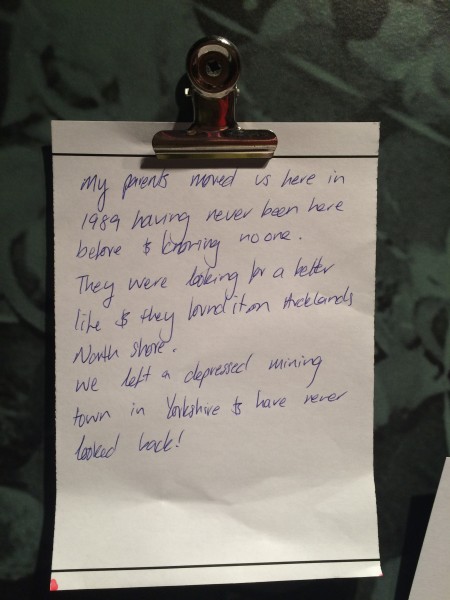 My parents moved us here in
1989 having never been here
before & knowing no one.
They were looking for a better
life & they found it on Aucklands
North shore.
We left a depressed mining
town in Yorkshire & have never
looked back!